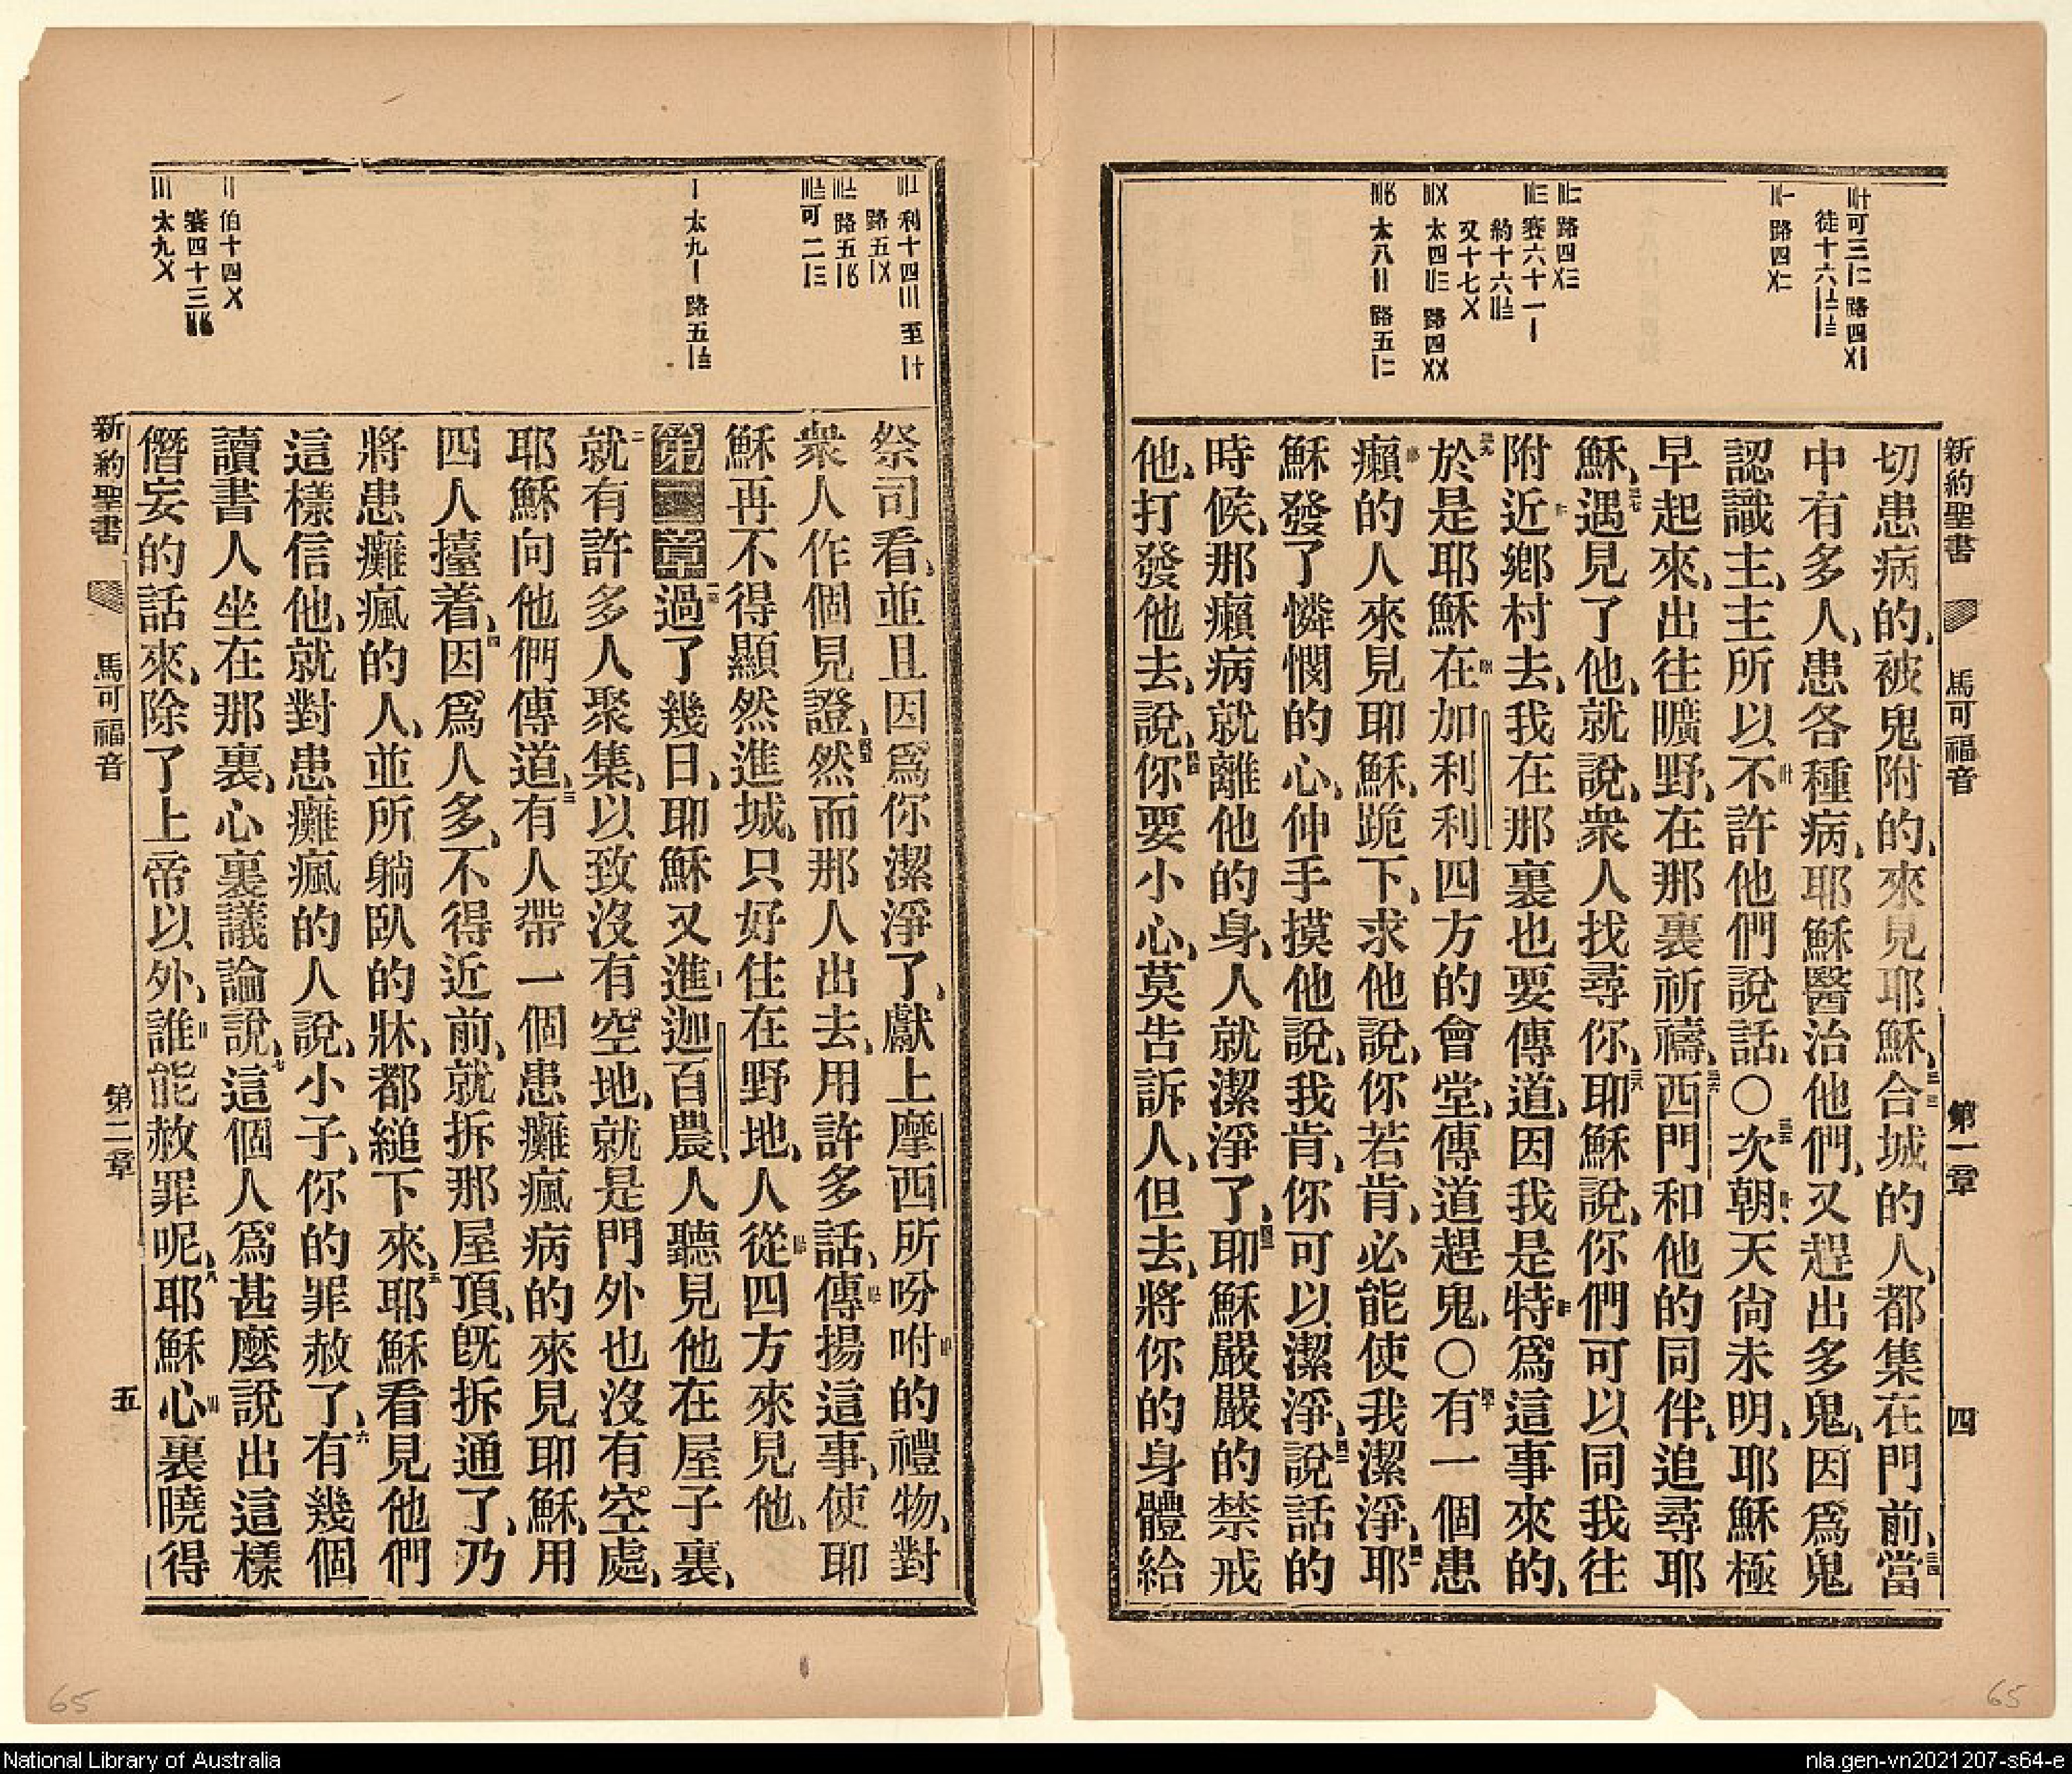 新約聖書 馬可福音 第一章 四
切患病的、被鬼附的、來見耶穌、合城的人、都集在門前、當
中有多人、患各種病、耶穌醫治他們、又趕出多鬼、因爲鬼
認識主、主所以不許他們說話、〇次朝、天尙未明、耶穌極
早起來、出往曠野、在那裏祈禱、西門和他的同伴、追尋耶
穌、遇見了他、就說、衆人找尋你、耶穌說、你們可以同我往
附近鄉村去、我在那裏也要傳道、因我是特爲這事來的、
於是耶穌在加利利四方的會堂、傳道趕鬼、〇有一個患
癩的人來見耶穌、跪下、求他說、你若肯、必能使我潔淨、耶
穌發了憐憫的心、伸手摸他說、我肯、你可以潔淨、說話的
時候、那癩病就離他的身、人就潔淨了、耶穌嚴嚴的禁戒
他、打發他去、說、你要小心、莫告訴人、但去、將你的身體給
祭司看、並且因爲你潔淨了、獻上摩西所吩咐的禮物、對
衆人作個見證、然而那人出去、用許多話、傳揚這事、使耶
穌再不得顯然進城、只好住在野地、人從四方來見他、
第二章過了幾日、耶穌又進迦百農、人聽見他在屋子裏、
就有許多人聚集、以致沒有空地、就是門外也沒有空處、
耶穌向他們傳道、有人帶一個患癱瘋病的來見耶穌、用
四人擡着、因爲人多、不得近前、就拆那屋頂、旣拆通了、乃
將患癱瘋的人、並所躺臥的牀、都縋下來、耶穌看見他們
這樣信他、就對患癱瘋的人說、小子、你的罪赦了、有幾個
讀書人坐在那裏、心裏議論說、這個人爲甚麼說出這樣
僭妄的話來、除了上帝以外、誰能赦罪呢、耶穌心裏曉得
新約聖書 馬可福音 第二章 五
65
65
National Library of Australia
nla.gen-vn2021207-s64-e